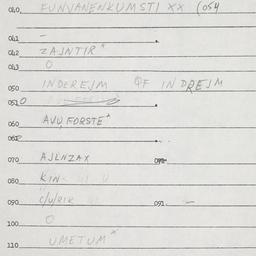 040 FUNVANENKUMSTI XX (054
041 -
042 ZAJNTIR*
043 O
050 INDEREJM OF INDREJM
051 O
060 AVU, FORSTE*
070 AJENZAX
080 KIN
090 C/U/RIK 091. -
100 O
110 UMETUM*